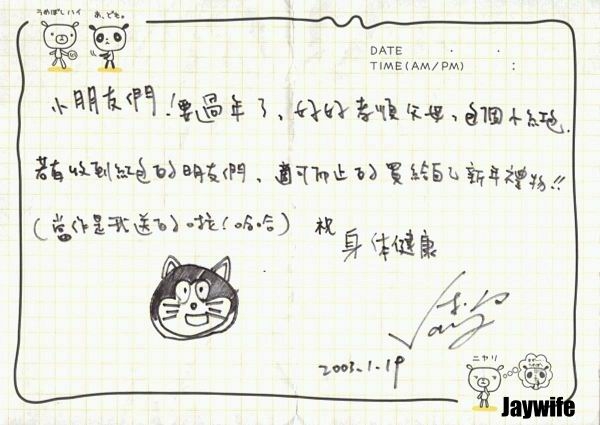 うめぼしハイ
あ、ども。
DATE . .
TIME(AM/PM) :
小朋友們!要過年了,好好孝順父母,包個小紅包.
若有收到紅包的朋友們,適可而止的買給自己新年禮物!!
(當作是我送的啦!哈哈) 祝
身体健康
Jay
2003.1.19
ニヤリ
Jaywife